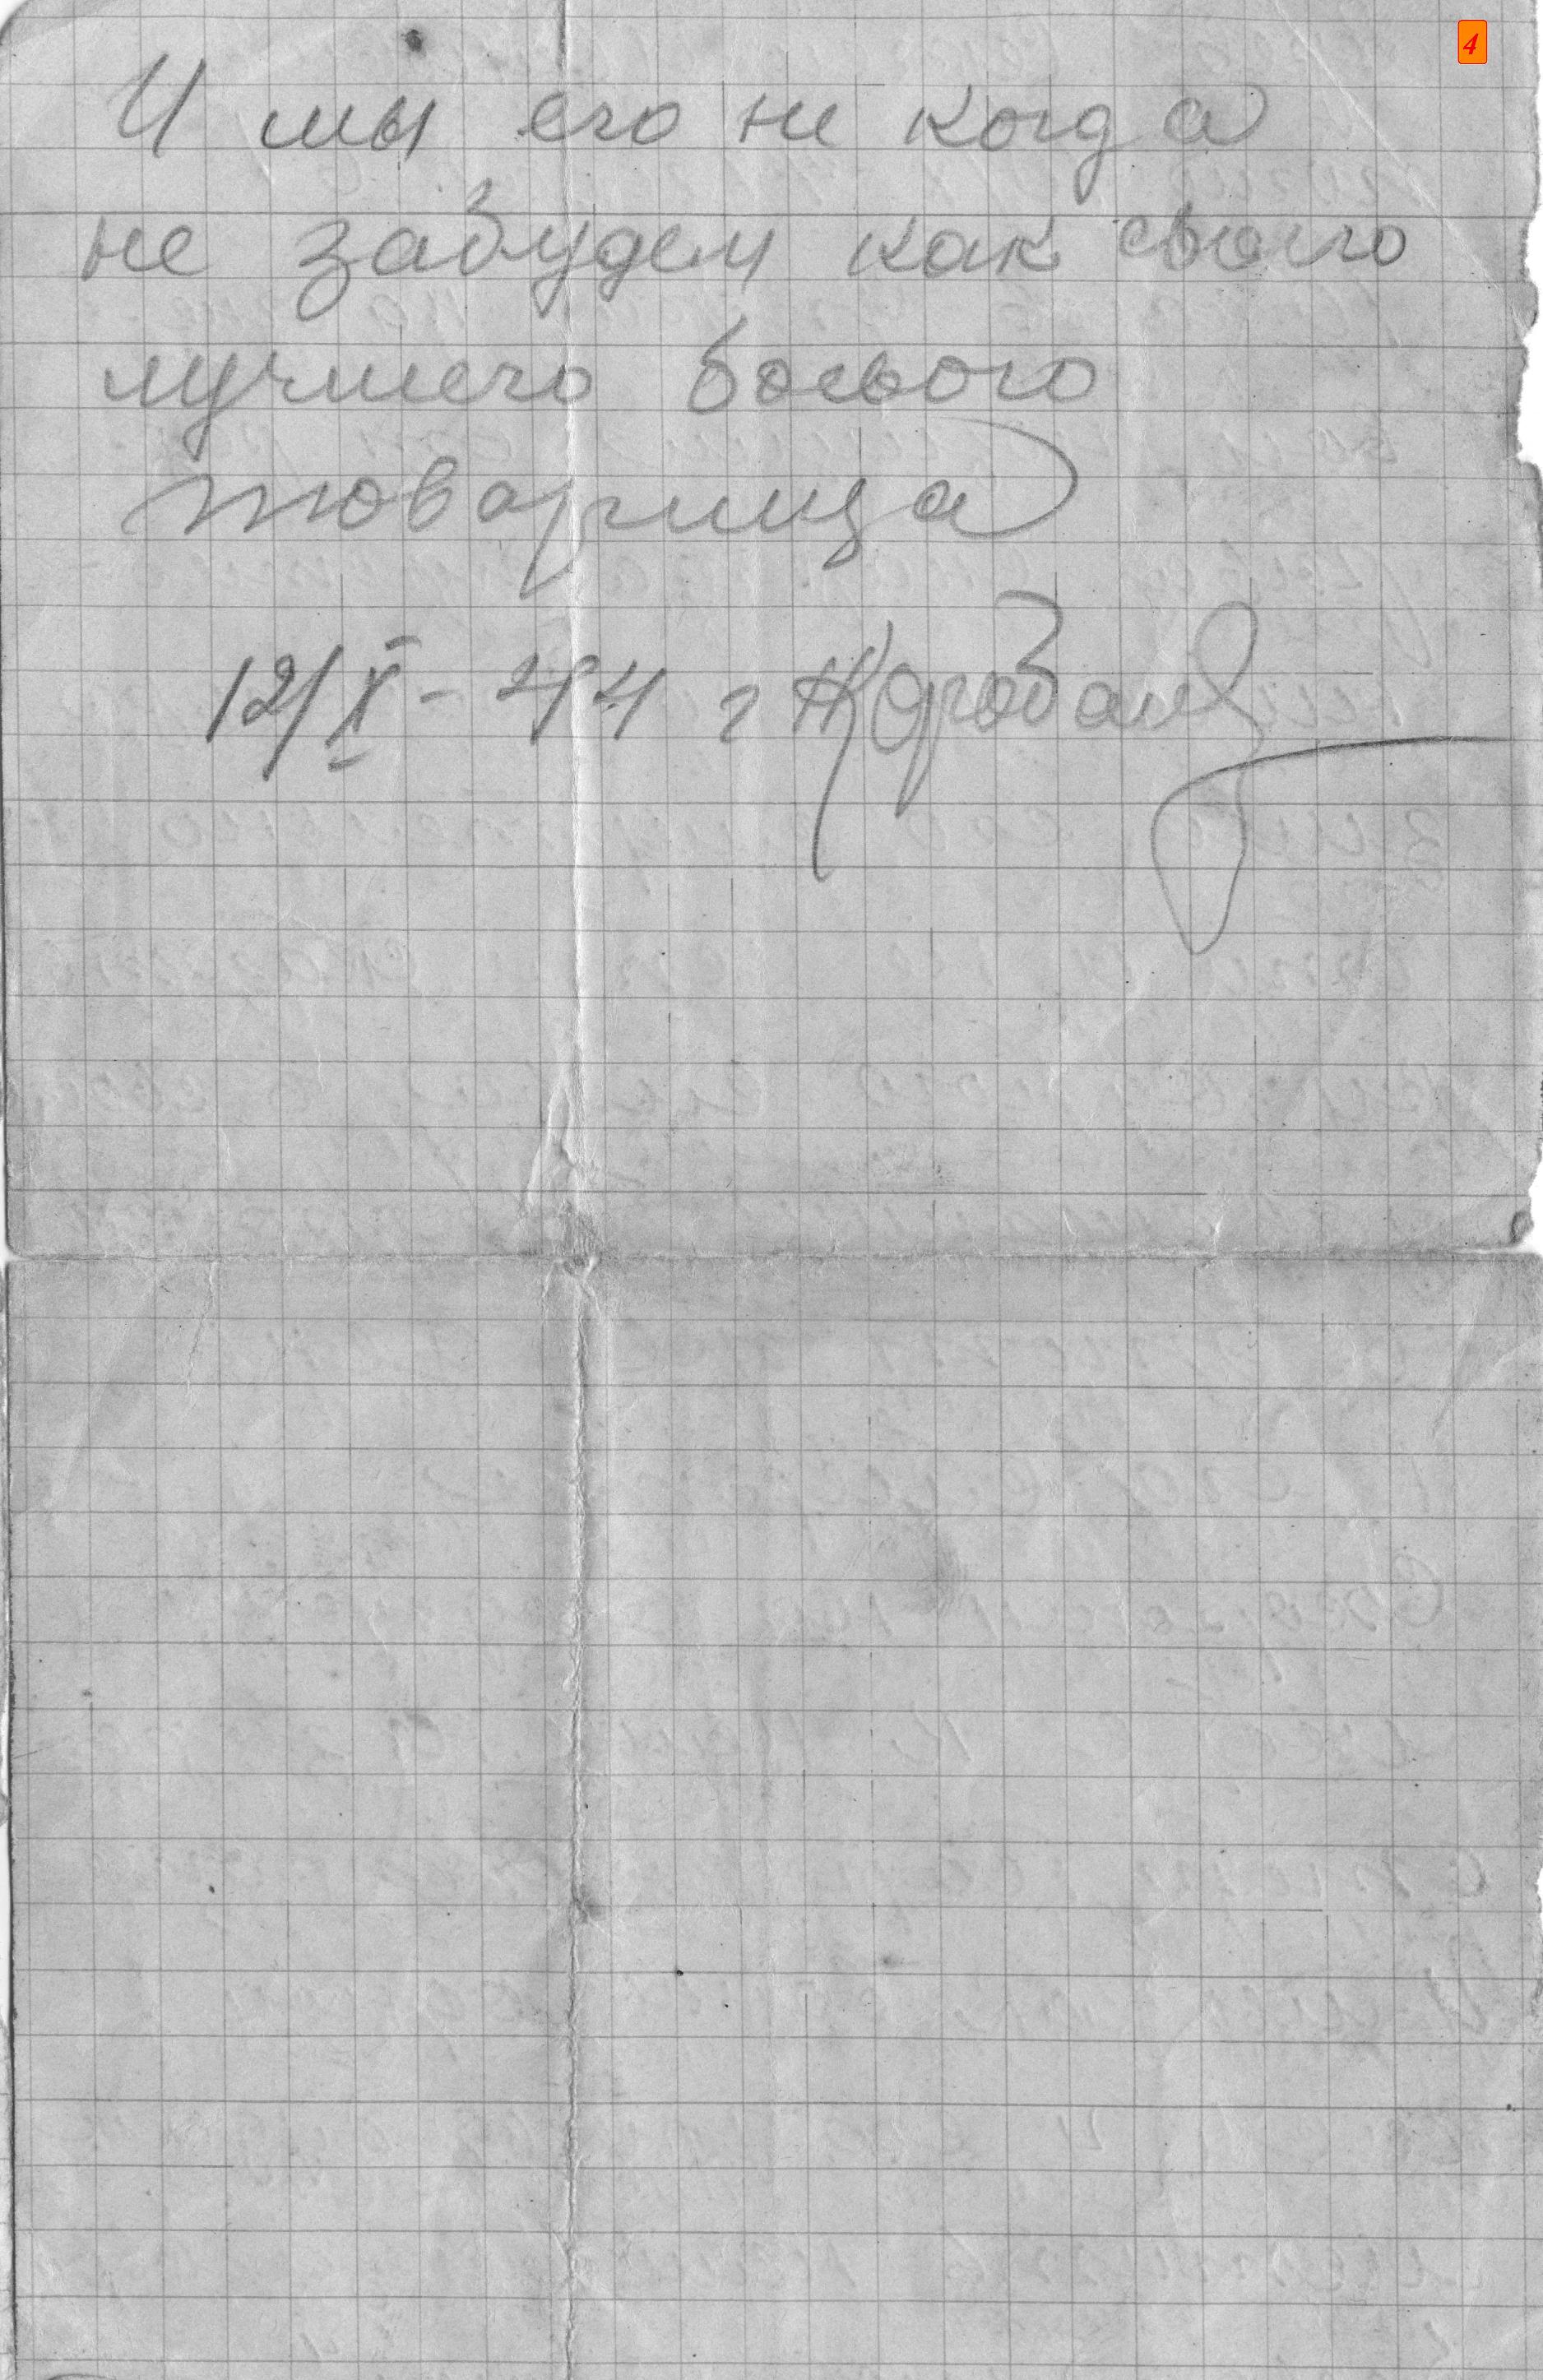 4
И мы его ни когда
не забудем как своего
лучшего боевого
товарища
12/X - 44 г